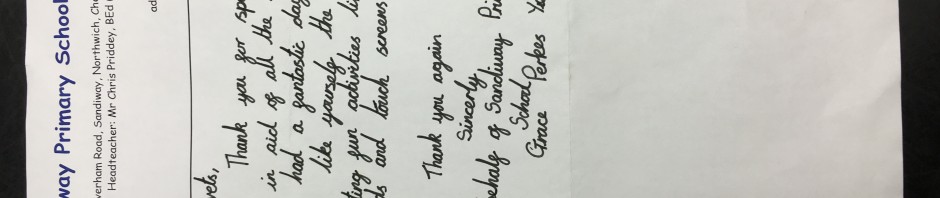 way Primary School
verham Road, Sandiway, Northwich, Ch
Headteacher: Mr Chris Priddey, BEd
ad
vets,
Thank you for sp
in aid of all the
had a fantastic day
like yourself the
ting fun activities li
ds and touch screens
Thank you again
Sincerly
ehalf of Sandiway Pri
School
Grace Perkes Ye